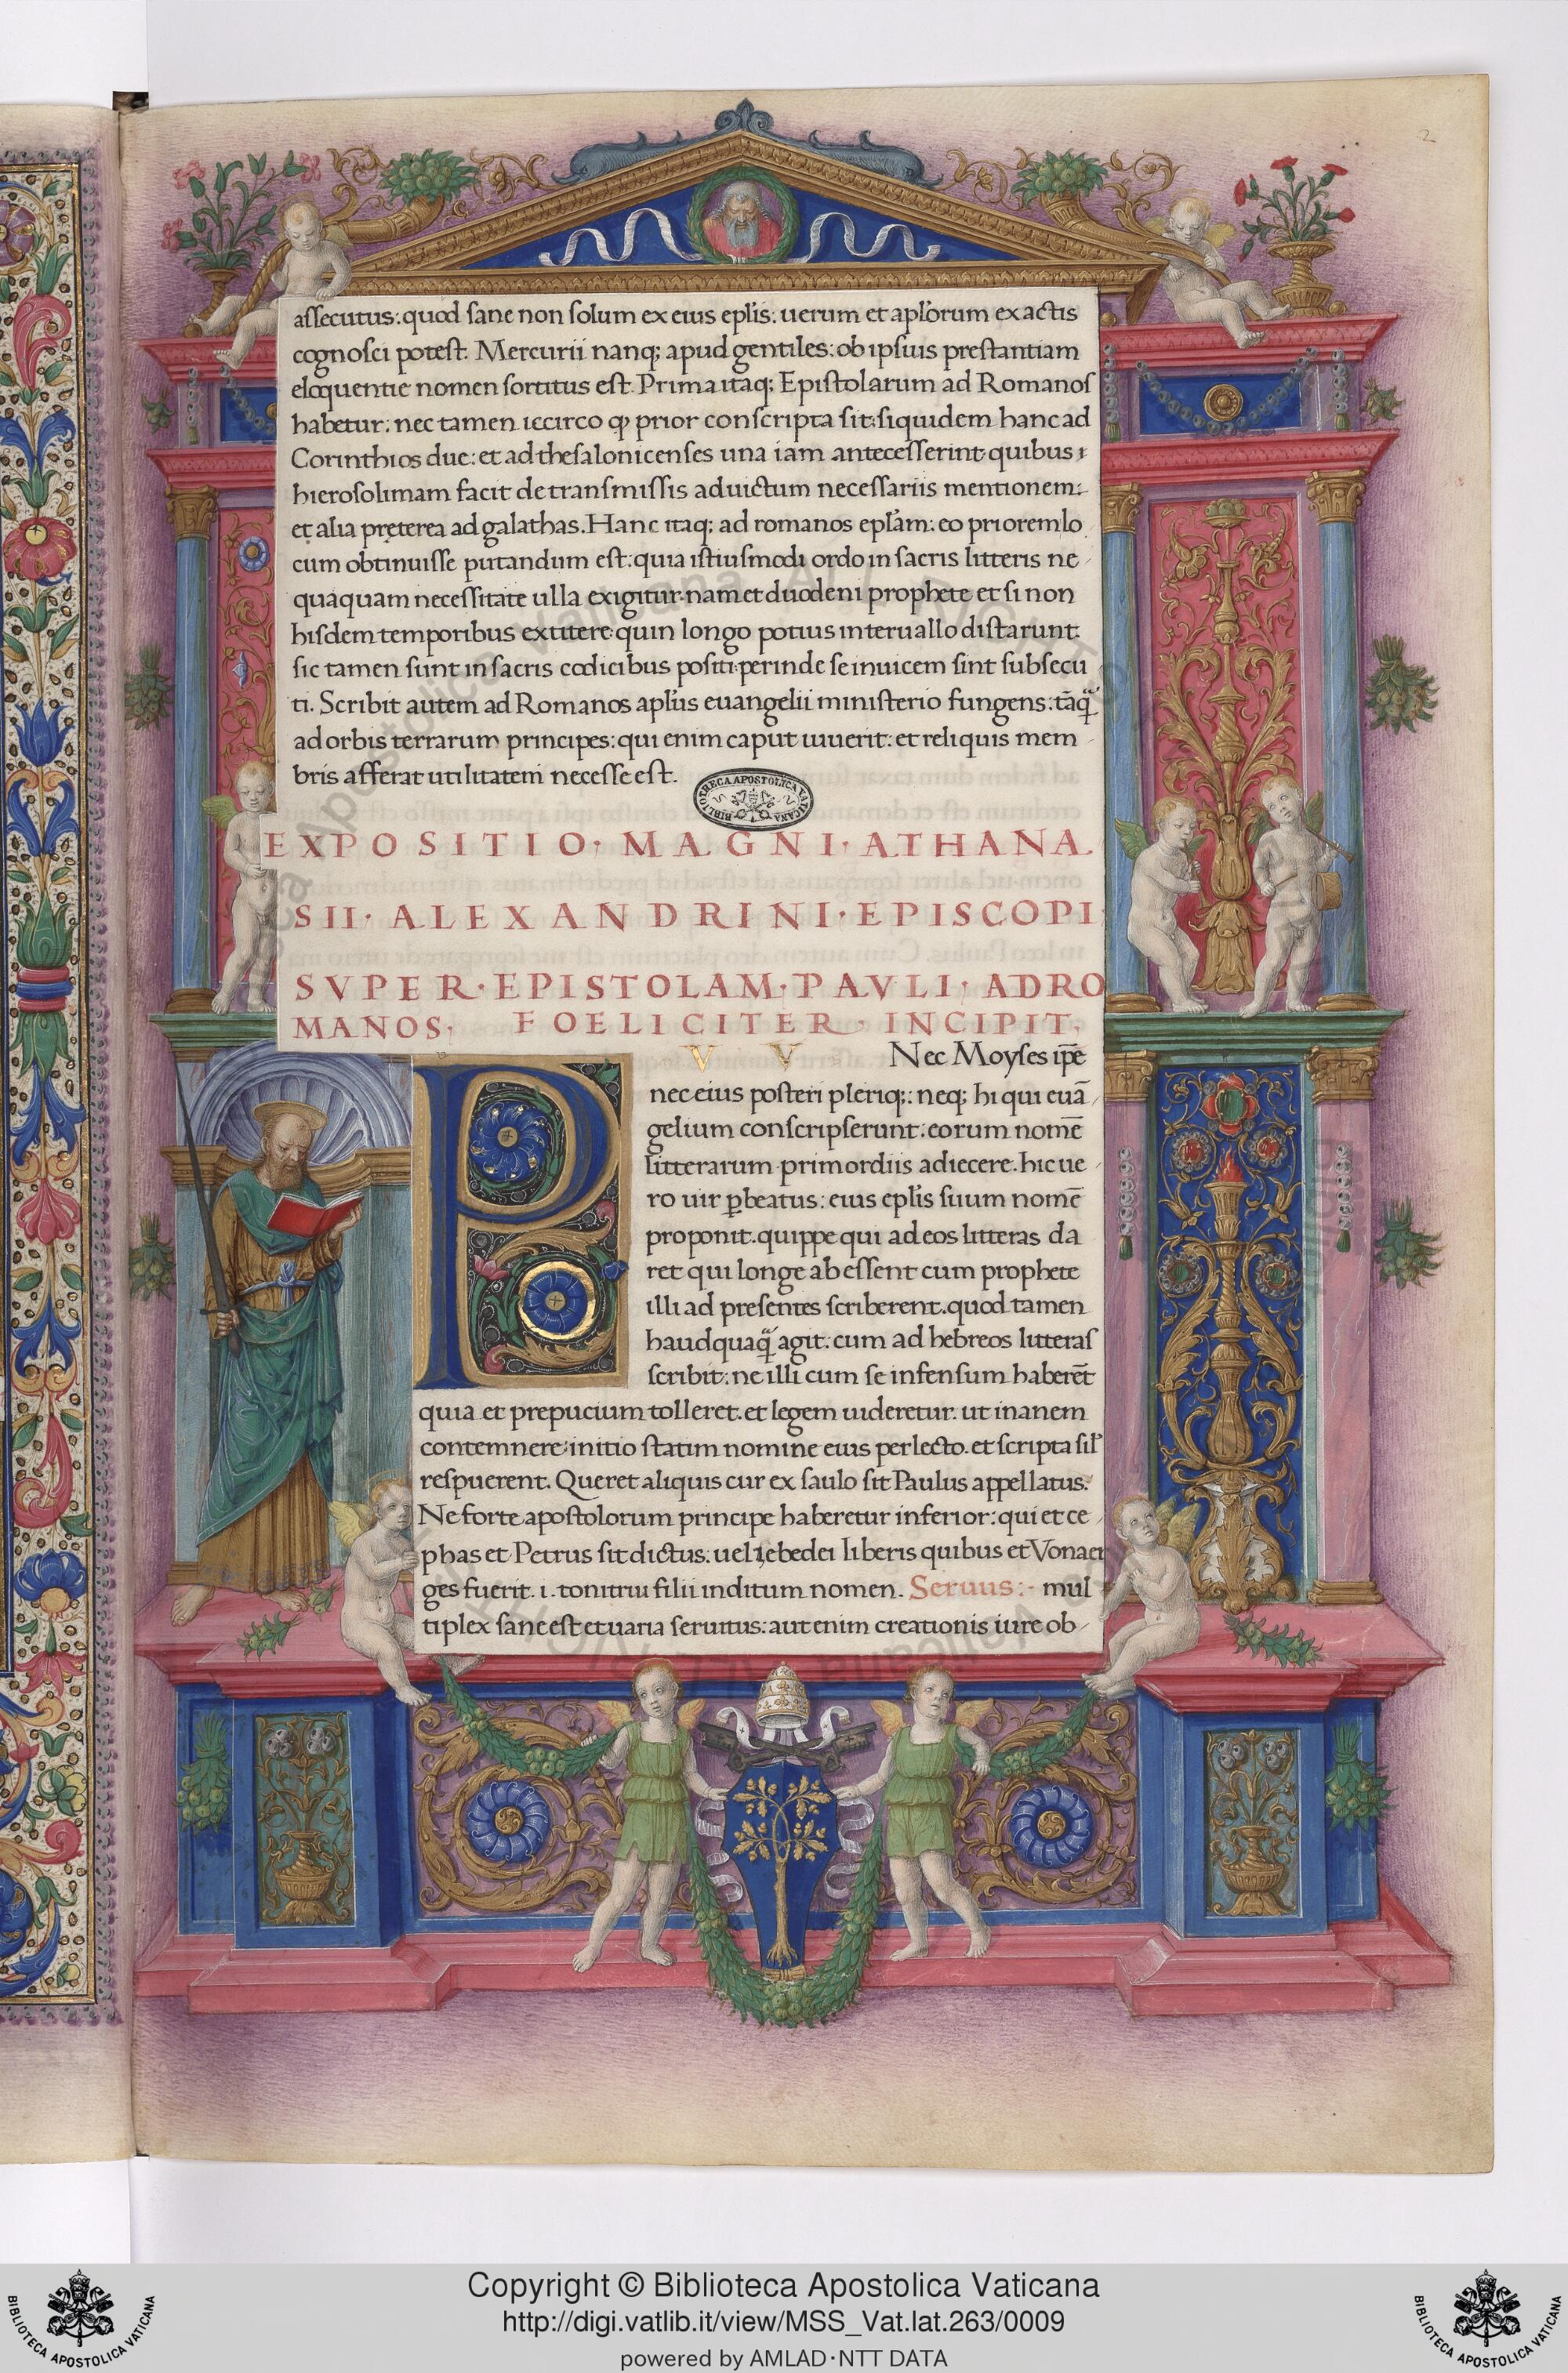 2
assecutus: quod sane non solum ex eius epl̃is: uerum et apl̃orum ex actis
cognosci potest. Mercurii nanq; apud gentiles: ob ipsius prestantiam
eloquentie nomen sortitus est. Prima itaq; Epistolarum ad Romanos
habetur: nec tamen iccirco ꝙ prior conscripta sit: siquidem hanc ad
Corinthios due: et ad thesalonicenses una iam antecesserint quibus
hierosolimam facit de transmissis ad uictum necessariis mentionem:
et alia pręterea ad galathas. Hanc itaq; ad romanos epl̃am: eo priorem lo
cum obtinuisse putandum est: quia istiusmodi ordo in sacris litteris ne
quaquam necessitate ulla exigitur. nam et duodeni prophete et si non
hisdem temporibus extitere: quin longo potius interuallo distarunt.
sic tamen sunt in sacris codicibus positi: perinde se inuicem sint subsecu
ti. Scribit autem ad Romanos apl̃us euangelii ministerio fungens: tãq̃
ad orbis terrarum principes: qui enim caput iuuerit: et reliquis mem
bris afferat utilitatem necesse est.
BIBLIOTHECA APOSTOLICA VATICANA
EXPOSITIO· MAGNI· ATHANA
SII· ALEXANDRINI· EPISCOPI·
SVPER· EPISTOLAM· PAVLI· AD RO
MANOS· FOELICITER· INCIPIT·
P V V Nec Moyses ip̃e
nec eius posteri pleriq;: neq; hi qui euã
gelium conscripserunt: eorum nomẽ
litterarum primordiis adiecere. hic ue
ro uir ꝑbeatus: eius epl̃is suum nomẽ
proponit. quippe qui ad eos litteras da
ret qui longe abessent cum prophete
illi ad presentes scriberent. quod tamen
haudquaq̃ agit: cum ad hebreos litteras
scribit: ne illi cum se infensum haberẽt
quia et prepucium tolleret. et legem uideretur. ut inanem
contemnere: initio statim nomine eius perlecto. et scripta sil̃
respuerent. Queret aliquis cur ex saulo sit Paulus appellatus.
Ne forte apostolorum principe haberetur inferior: qui et ce
phas et Petrus sit dictus. uel zebedei liberis quibus et Vonaer
ges fuerit .i. tonitrui filii inditum nomen. Seruus:- mul
tiplex sane est et uaria seruitus: aut enim creationis iure ob
Copyright © Biblioteca Apostolica Vaticana
http://digi.vatlib.it/view/MSS_Vat.lat.263/0009
powered by AMLAD·NTT DATA
BIBLIOTECA APOSTOLICA VATICANA
BIBLIOTECA APOSTOLICA VATICANA